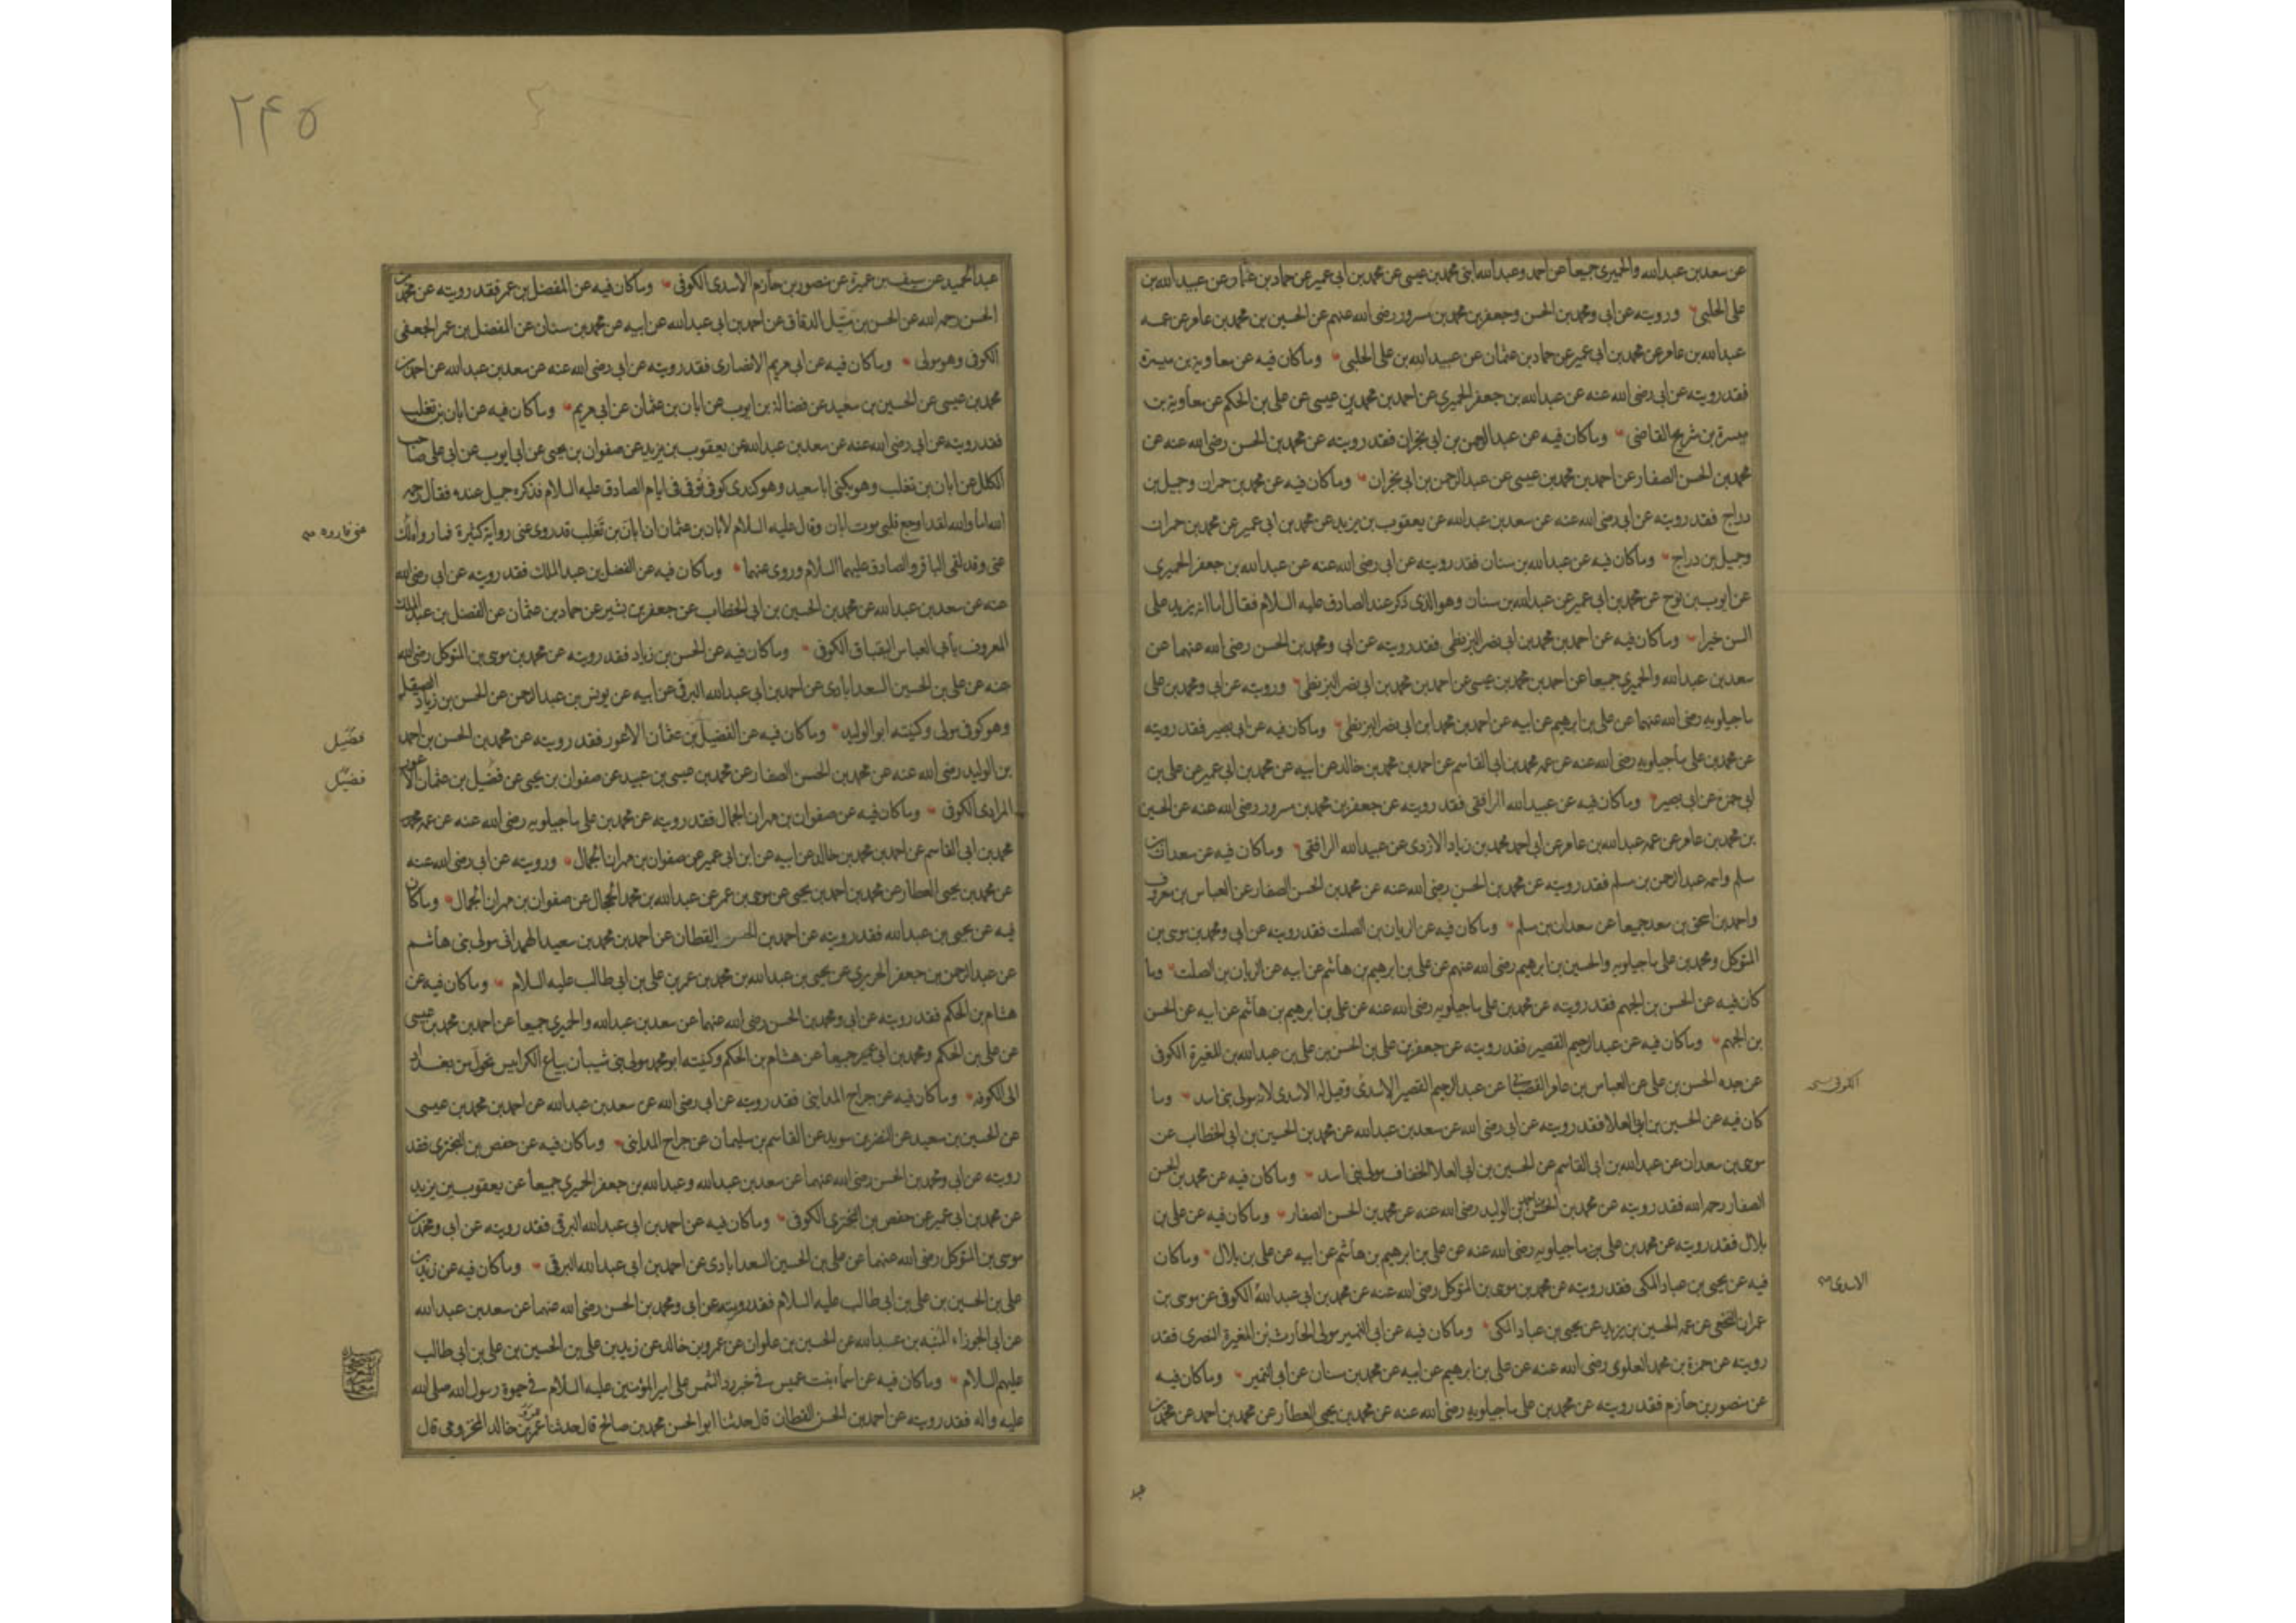 عن سعد بن عبدالله والحميري جميعا عن احمد وعبدالله ابنى محمد بن عيسى عن محمد بن ابى عمير عن حماد بن عثمان عن عبيدالله بن
على الحلبى ورويته عن ابى ومحمد بن الحسن وجعفر بن محمد بن مسرور رضى الله عنهم عن الحسين بن محمد بن عامر عن عمه
عبدالله بن عامر عن محمد بن ابى عمير عن حماد بن عثمان عن عبيدالله بن على الحلبى وماكان فيه عن معاوية بن ميسرة
فقد رويته عن ابى رضى الله عنه عن عبدالله بن جعفر الحميرى عن احمد بن محمد بن عيسى عن على بن الحكم عن معاوية بن
ميسرة بن شريح القاضى وماكان فيه عن عبدالرحمن بن ابى نجران فقد رويته عن محمد بن الحسن رضى الله عنه عن
محمد بن الحسن الصفار عن احمد بن محمد بن عيسى عن عبدالرحمن بن ابى نجران وماكان فيه عن محمد بن حمران وجميل بن
دراج فقد رويته عن ابى رضى الله عنه عن سعد بن عبدالله عن يعقوب بن يزيد عن محمد بن ابى عمير عن محمد بن حمران
وجميل بن دراج وماكان فيه عن عبدالله بن سنان فقد رويته عن ابى رضى الله عنه عن عبدالله بن جعفر الحميرى
عن ايوب بن نوح عن محمد بن ابى عمير عن عبدالله بن سنان وهو الذى ذكر عند الصادق عليه السلام فقال اما انه يزيد على
السن خيرا وماكان فيه عن احمد بن محمد بن ابى نصر البزنطى فقد رويته عن ابى ومحمد بن الحسن رضى الله عنهما عن
سعد بن عبدالله والحميرى جميعا عن احمد بن محمد بن عيسى عن احمد بن محمد بن ابى نصر البزنطى ورويته عن ابى ومحمد بن على
ماجيلويه رضى الله عنهما عن على بن ابرهيم عن ابيه عن احمد بن محمد ابن ابى نصر البزنطى وماكان فيه عن ابى بصير فقد رويته
عن محمد بن على ماجيلويه رضى الله عنه عن عمه محمد بن ابى القاسم عن احمد بن محمد بن خالد عن ابيه عن محمد بن ابى عمير عن على بن
ابى حمزة عن ابى بصير وماكان فيه عن عبيدالله الرافقى فقد رويته عن جعفر بن محمد بن مسرور رضى الله عنه عن الحسين
بن محمد بن عامر عن عمه عبدالله بن عامر عن ابى احمد محمد بن زياد الازدى عن عبيدالله الرافقى وماكان فيه عن سعدان بن
مسلم واسمه عبدالرحمن بن مسلم فقد رويته عن محمد بن الحسن رضى الله عنه عن محمد بن الحسن الصفار عن العباس بن معروف
واحمد بن اسحق بن سعد جميعا عن سعدان بن مسلم وماكان فيه عن الريان بن الصلت فقد رويته عن ابى ومحمد بن موسى بن
المتوكل ومحمد بن على ماجيلويه والحسين بن ابرهيم رضى الله عنهم عن على بن ابرهيم بن هاشم عن ابيه عن الريان بن الصلت وما
كان فيه عن الحسن بن الجهم فقد رويته عن محمد بن على ماجيلويه رضى الله عنه عن على بن ابرهيم بن هاشم عن ابيه عن الحسن
بن الجهم وماكان فيه عن عبدالرحيم القصير فقد رويته عن جعفر بن على بن الحسن بن على بن عبدالله بن المغيرة الكوفى
عن جده الحسن بن على عن العباس بن عامر القصبانى عن عبدالرحيم القصير الاسدى وقيل له الاسدى لانه مولى بنى اسد وما
الكوفى
كان فيه عن الحسين بن ابى العلا فقد رويته عن ابى رضى الله عن سعد بن عبدالله عن محمد بن الحسين بن ابى الخطاب عن
موسى بن سعدان عن عبدالله بن ابى القاسم عن الحسين بن ابى العلا الخفاف مولى بنى اسد وماكان فيه عن محمد بن الحسن
الصفار رحمه الله فقد رويته عن محمد بن الحسن بن احمد بن الوليد رضى الله عنه عن محمد بن الحسن الصفار وماكان فيه عن على بن
بلال فقد رويته عن محمد بن على بن ماجيلويه رضى الله عنه عن على بن ابرهيم بن هاشم عن ابيه عن على بن بلال وماكان
فيه عن يحيى بن عباد المكى فقد رويته عن محمد بن موسى بن المتوكل رضى الله عنه عن محمد بن ابى عبدالله الكوفى عن موسى بن
الاسدى
عمران النخعى عن عمه الحسين بن يزيد عن يحيى بن عباد المكى وماكان فيه عن ابى النمير مولى الحارث بن المغيرة النصرى فقد
رويته عن حمزة بن محمد العلوى رضى الله عنه عن على بن ابرهيم عن ابيه عن محمد بن سنان عن ابى النمير وماكان فيه
عن منصور بن حازم فقد رويته عن محمد بن على ماجيلويه رضى الله عنه عن محمد بن يحيى العطار عن محمد بن احمد عن محمد بن
عبد
۲۴۵
عبدالحميد عن سيف بن عميرة عن منصور بن حازم الاسدى الكوفى وماكان فيه عن المفضل بن عمر فقد رويته عن محمد بن
الحسن رحمه الله عن الحسن بن متيل الدقاق عن احمد بن ابى عبدالله عن ابيه عن محمد بن سنان عن المفضل بن عمر الجعفى
الكوفى وهو مولى وماكان فيه عن ابى مريم الانصارى فقد رويته عن ابى رضى الله عنه عن سعد بن عبدالله عن احمد بن
محمد بن عيسى عن الحسين بن سعيد عن فضالة بن ايوب عن ابان بن عثمان عن ابى مريم وماكان فيه عن ابان بن تغلب
فقد رويته عن ابى رضى الله عنه عن سعد بن عبدالله عن يعقوب بن يزيد عن صفوان بن يحيى عن ابى ايوب عن ابى على صاحب
الكلل عن ابان بن تغلب وهو يكنى ابا سعيد وهو كندى كوفى توفى فى ايام الصادق عليه السلام فذكره جميل عنده فقال رحمه
الله اما والله لقد اوجع قلبى موت ابان وقال عليه السلام لابان بن عثمان ان ابان بن تغلب قد روى عنى رواية كثيرة فما رواه لك
عنى فاروه
عنى وقد لقى الباقر والصادق عليهما السلام وروى عنهما وماكان فيه عن الفضل بن عبدالملك فقد رويته عن ابى رضى الله
عنه عن سعد بن عبدالله عن محمد بن الحسين بن ابى الخطاب عن جعفر بن بشير عن حماد بن عثمان عن الفضل بن عبدالملك
المعروف بأبى العباس البقباق الكوفى وماكان فيه عن الحسن بن زياد فقد رويته عن محمد بن موسى بن المتوكل رضى الله
عنه عن على بن الحسين السعدابادى عن احمد بن ابى عبدالله البرقى عن ابيه عن يونس بن عبدالرحمن عن الحسن بن زياد الصيقل
وهو كوفى مولى وكنيته ابو الوليد وماكان فيه عن الفضيل بن عثمان الاعور فقد رويته عن محمد بن الحسن بن احمد
فضيل
بن الوليد رضى الله عنه عن محمد بن الحسن الصفار عن محمد بن عيسى بن عبيد عن صفوان بن يحيى عن فضيل بن عثمان الاعور
فضيل
المرادى الكوفى وماكان فيه عن صفوان بن مهران الجمال فقد رويته عن محمد بن على ماجيلويه رضى الله عنه عن عمه محمد
محمد بن ابى القاسم عن احمد بن محمد بن خالد عن ابيه عن ابن ابى عمير عن صفوان بن مهران الجمال ورويته عن ابى رضى الله عنه
عن محمد بن يحيى العطار عن محمد بن احمد بن يحيى عن موسى بن عمر عن عبدالله بن محمد الحجال عن صفوان بن مهران الجمال وماكان
فيه عن يحيى بن عبدالله فقد رويته عن احمد بن الحسن القطان عن احمد بن محمد بن سعيد الهمدانى مولى بنى هاشم
عن عبدالرحمن بن جعفر الحريرى عن يحيى بن عبدالله بن محمد بن عمر بن على بن ابى طالب عليه السلام وماكان فيه عن
هشام بن الحكم فقد رويته عن ابى ومحمد بن الحسن رضى الله عنهما عن سعد بن عبدالله والحميرى جميعا عن احمد بن محمد بن عيسى
عن على بن الحكم ومحمد بن ابى عمير جميعا عن هشام بن الحكم وكنيته ابو محمد مولى بنى شيبان بياع الكرابيس تحول من بغداد
الى الكوفة وماكان فيه عن جراح المداينى فقد رويته عن ابى رضى الله عن سعد بن عبدالله عن احمد بن محمد بن عيسى
عن الحسين بن سعيد عن النضر بن سويد عن القاسم بن سليمان عن جراح المداينى وماكان فيه عن حفص بن البخترى فقد
رويته عن ابى ومحمد بن الحسن رضى الله عنهما عن سعد بن عبدالله وعبدالله بن جعفر الحميرى جميعا عن يعقوب بن يزيد
عن محمد بن ابى عمير عن حفص بن البخترى الكوفى وماكان فيه عن احمد بن ابى عبدالله البرقى فقد رويته عن ابى ومحمد بن
موسى بن المتوكل رضى الله عنهما عن على بن الحسين السعدابادى عن احمد بن ابى عبدالله البرقى وماكان فيه عن زيد بن
على بن الحسين بن على بن ابى طالب عليه السلام فقد رويته عن ابى ومحمد بن الحسن رضى الله عنهما عن سعد بن عبدالله
عن ابى الجوزاء المنبه بن عبدالله عن الحسين بن علوان عن عمرو بن خالد عن زيد بن على بن الحسين بن على بن ابى طالب
عليهم السلام وماكان فيه عن اسماء بنت عميس فى خبر رد الشمس على امير المؤمنين عليه السلام فى حيوة رسول الله صلى الله
عليه واله فقد رويته عن احمد بن الحسن القطان قال حدثنا ابو الحسن محمد بن صالح قال حدثنا عمر بن خالد المخزومى قال